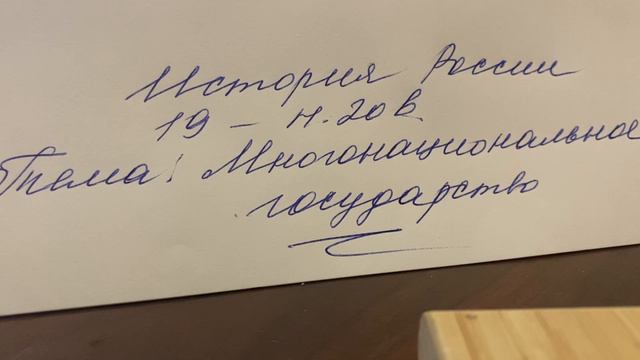 История России
19 – н. 20 в
Тема: Многонациональное
государство